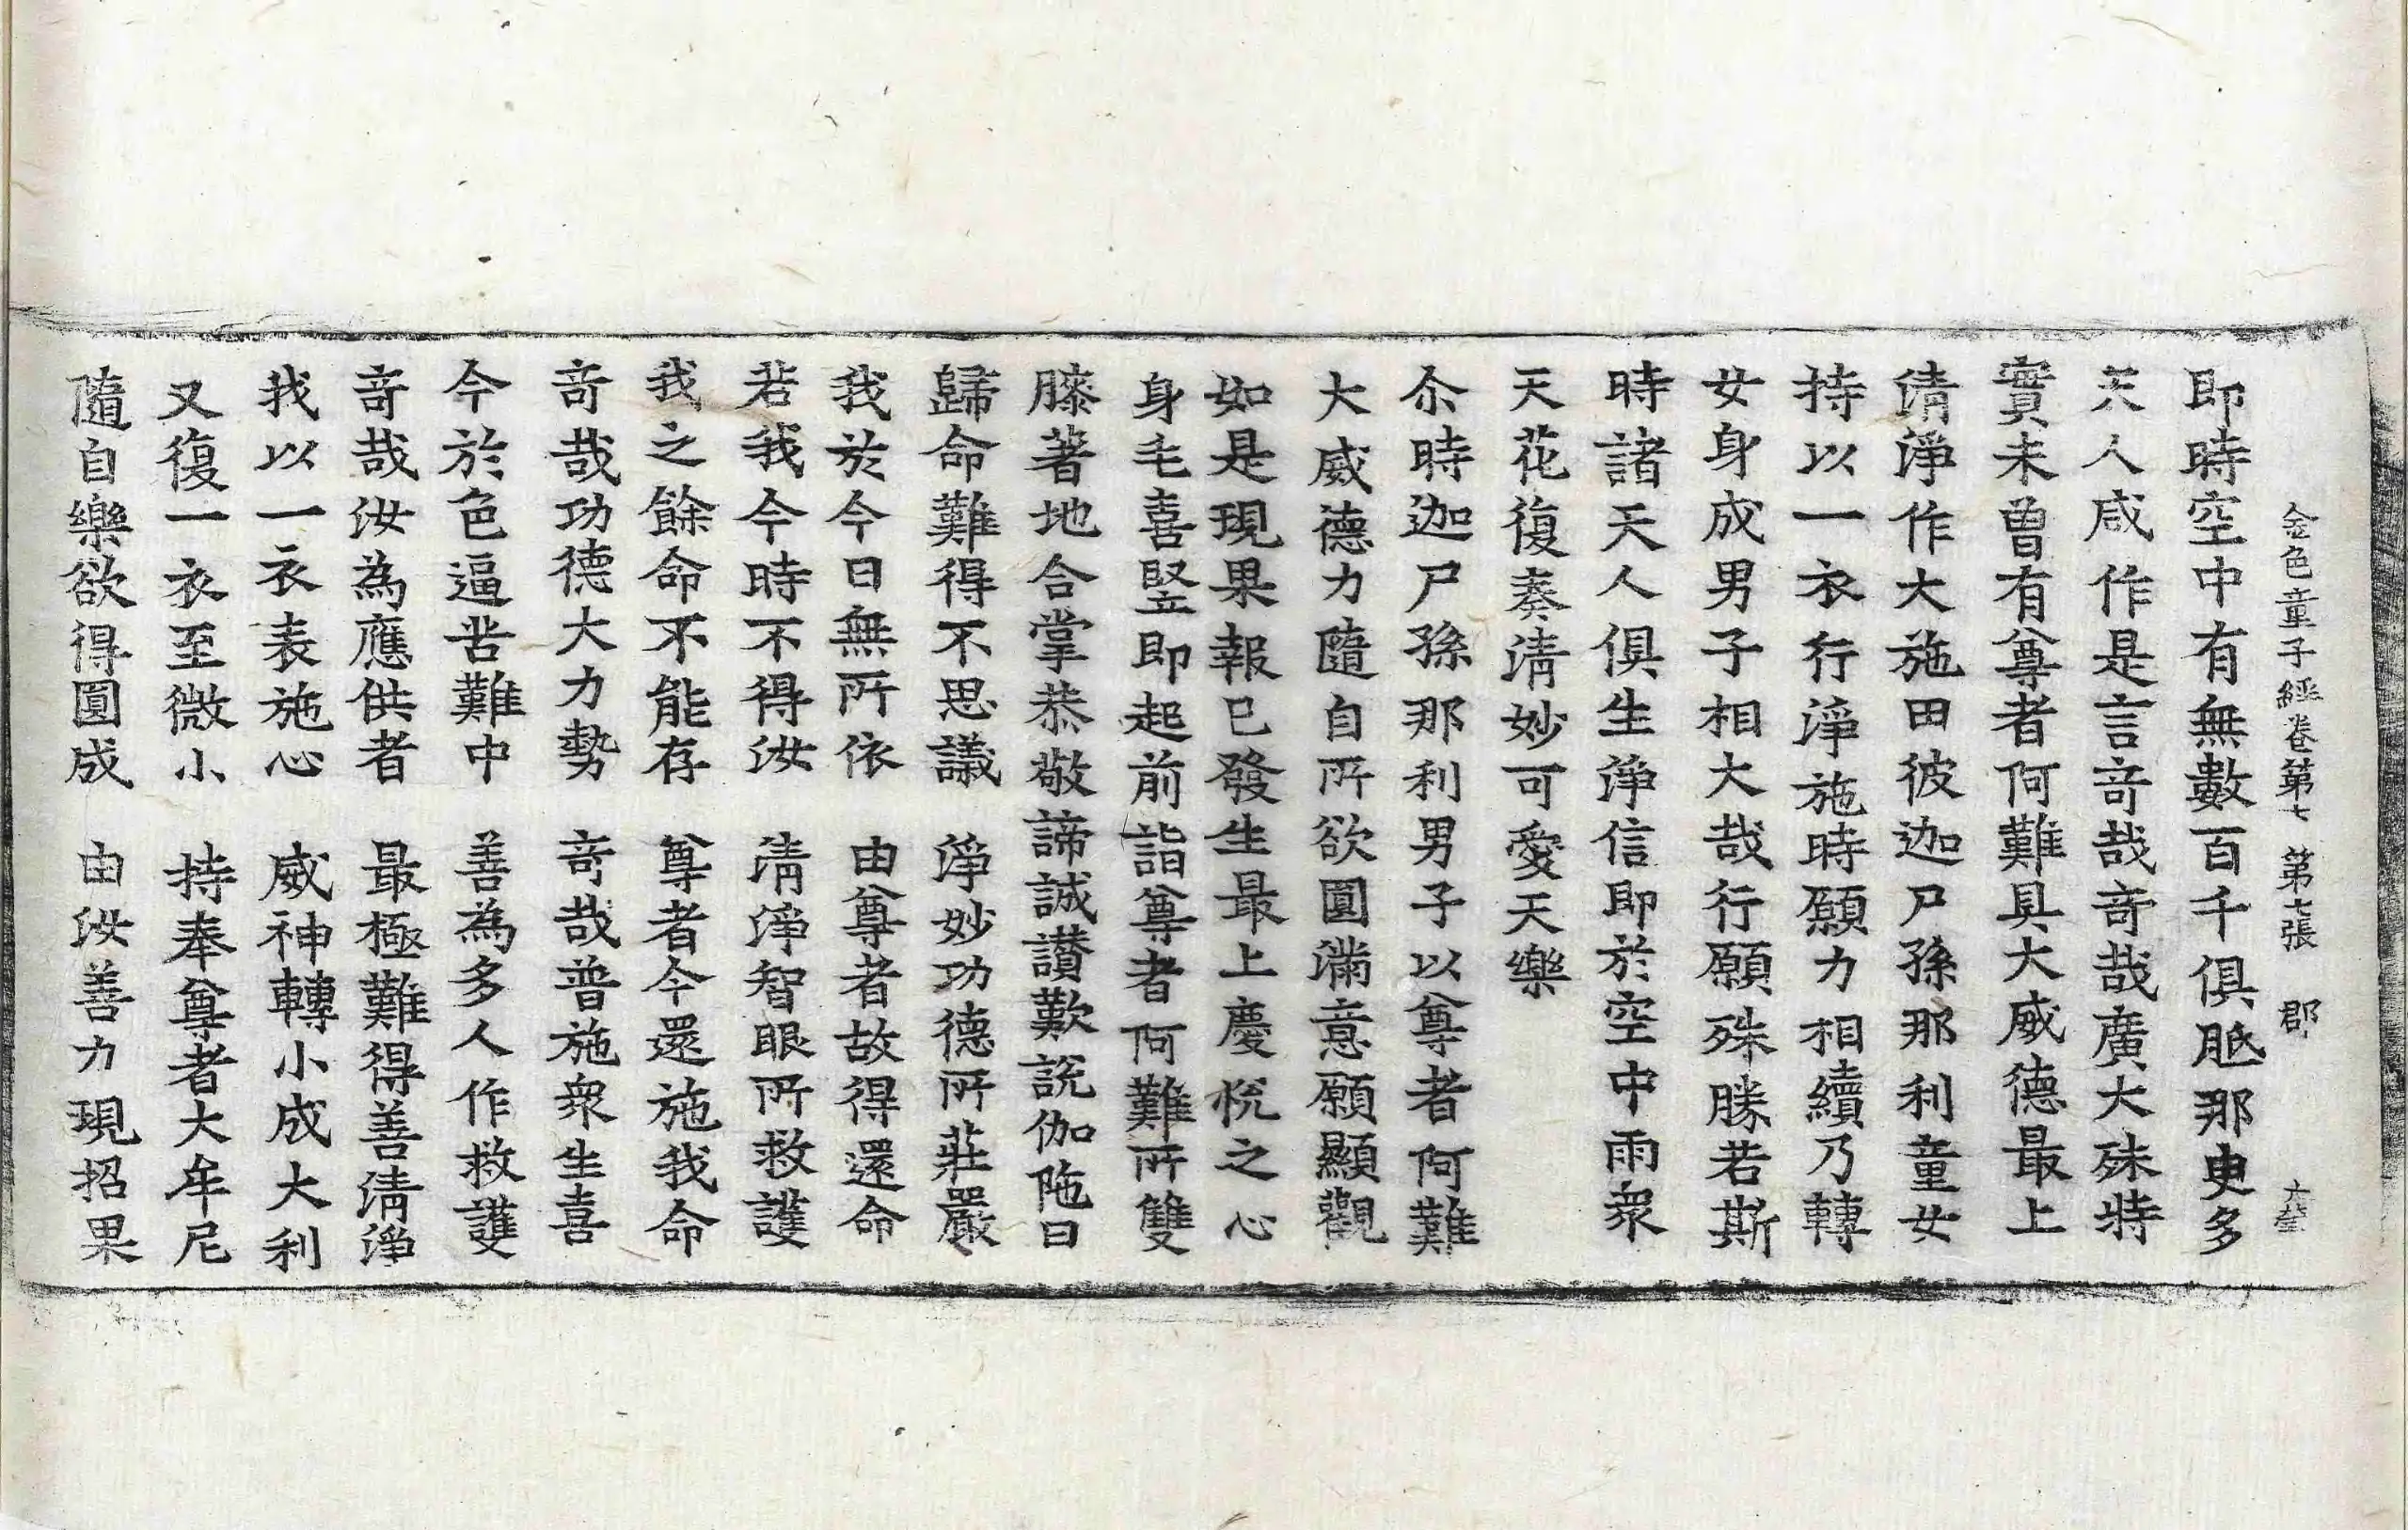 金色童子經卷第七 第七張 郡
即時空中有無數百千俱胝那庾多
天人咸作是言竒哉竒哉廣大殊特
實未曾有尊者阿難具大威德最上
清淨作大施田彼迦尸孫那利童女
持以一衣行淨施時願力相續乃轉
女身成男子相大哉行願殊勝若斯
時諸天人俱生淨信即於空中雨衆
天花復奏清妙可愛天樂
尒時迦尸孫那利男子以尊者阿難
大威德力隨自所欲圓滿意願顯觀
如是現果報已發生最上慶悅之心
身毛喜竪即起前詣尊者阿難所雙
膝著地合掌恭敬諦誠讃歎說伽陁曰
歸命難得不思議 淨妙功德所莊嚴
我於今日無所依 由尊者故得還命
若我今時不得汝 清淨智眼所救護
我之餘命不能存 尊者今還施我命
竒哉功德大力勢 竒哉普施衆生喜
今於色逼苦難中 善為多人作救護
竒哉汝為應供者 最極難得善清淨
我以一衣表施心 威神轉小成大利
又復一衣至微小 持奉尊者大牟尼
隨自樂欲得圓成 由汝善力現招果